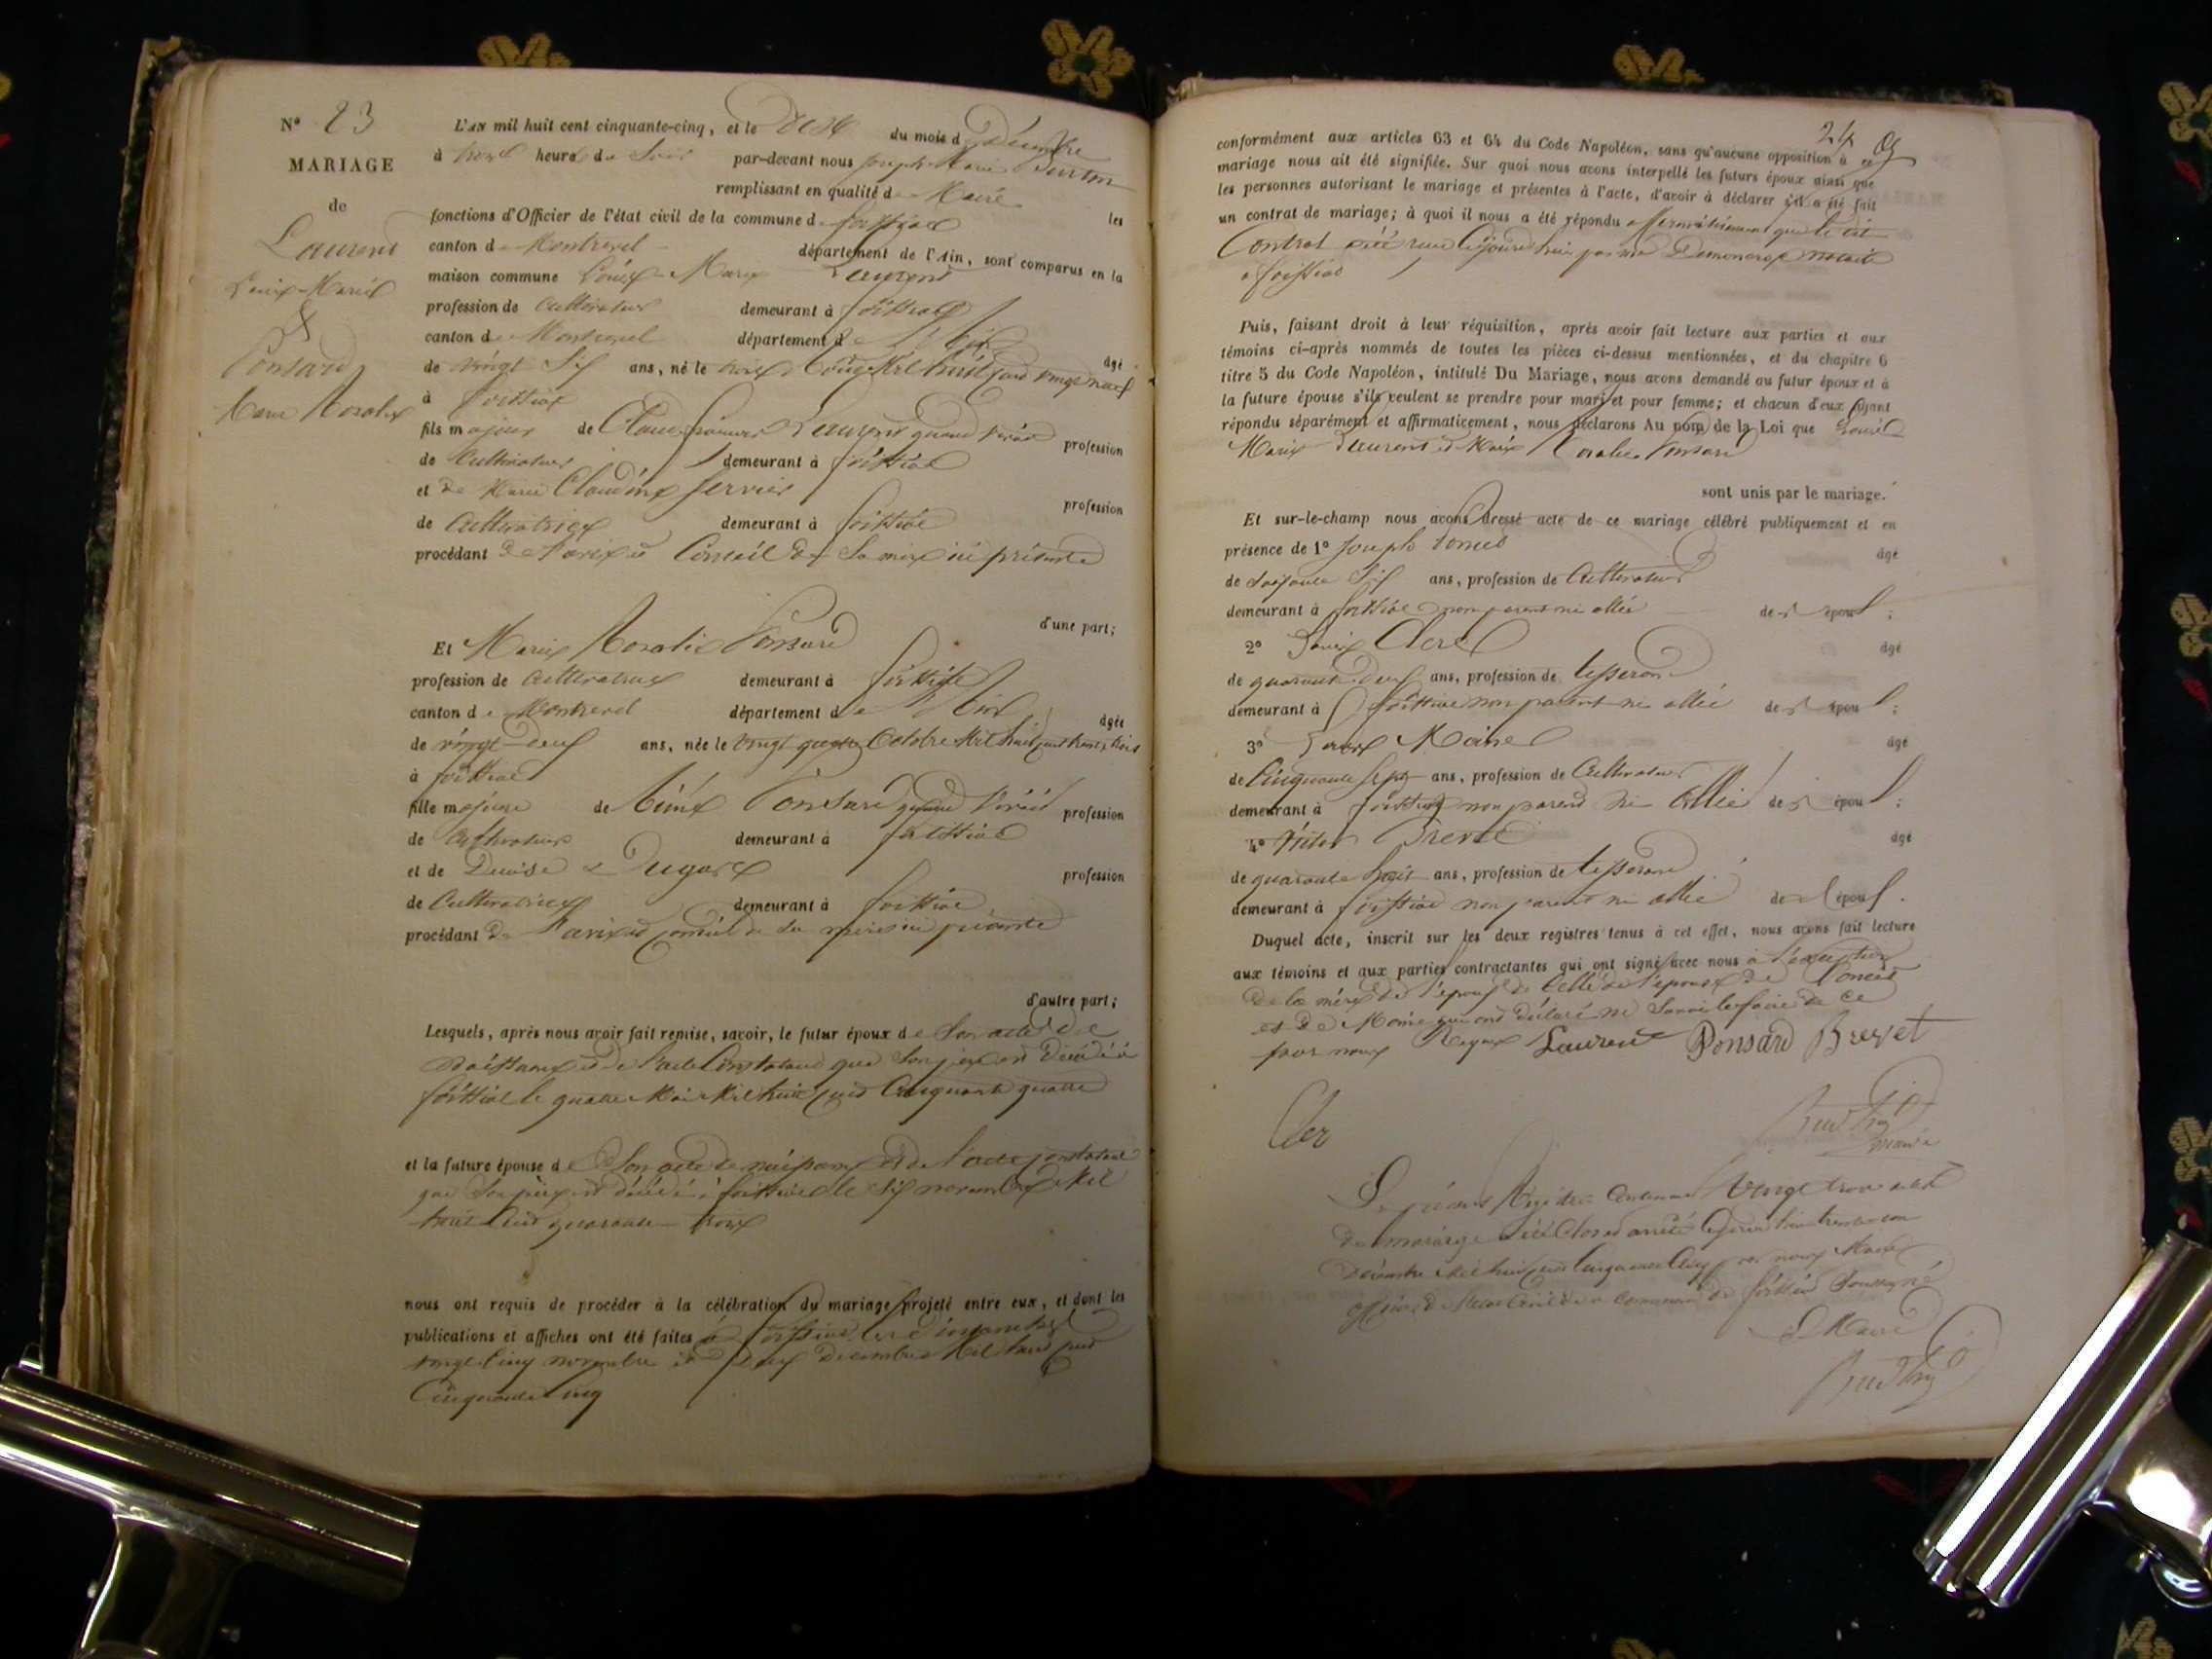 Nº 23
MARIAGE
de
Laurent
Louis-Marie
&
Ponsard
Marie Rosalie
L'AN mil huit cent cinquante-cinq, et le du mois de Décembre
à trois heures du Soir par-devant nous Joseph Marie
remplissant en qualité de Maire les
fonctions d'Officier de l'état civil de la commune de foissiat
canton de Montrevel département de l'Ain, sont comparus en la
maison commune Louis Marie Laurent
profession de Cultivateur demeurant à foissiat
canton de Montrevel département de l'Ain âgé
de vingt Six ans, né le trois Mil huit cent vingt neuf
à foissiat
fils majeur de Claude Laurent quand vivait profession
de Cultivateur demeurant à foissiat
et de Marie Claudine profession
de Cultivatrice demeurant à foissiat
procédant de l'avis et Conseil de Sa mère ici présente
d'une part;
Et Marie Rosalie Ponsard
profession de Cultivatrice demeurant à foissiat
canton de Montrevel département de l'Ain âgée
de vingt-deux ans, née le vingt quatre Octobre Mil huit cent trente trois
à foissiat
fille majeure de Ponsard quand vivait profession
de Cultivateur demeurant à foissiat
et de Denise profession
de Cultivatrice demeurant à foissiat
procédant de l'avis et conseil de Sa mère ici présente
d'autre part;
Lesquels, après nous avoir fait remise, savoir, le futur époux de Son acte de
Naissance et de l'acte Constatant que Son père est Décédé à
foissiat le quatre Mai Mil huit cent Cinquante quatre
et la future épouse de Son acte de naissance et de l'acte constatant
que Son père est décédé à foissiat le Six novembre Mil
huit Cent quarante trois
nous ont requis de procéder à la célébration du mariage projeté entre eux, et dont les
publications et affiches ont été faites à foissiat les Dimanches
vingt Cinq novembre et deux Décembre Mil huit Cent
Cinquante Cinq
24
conformément aux articles 63 et 64 du Code Napoléon, sans qu'aucune opposition à ce
mariage nous ait été signifiée. Sur quoi nous avons interpellé les futurs époux ainsi que
les personnes autorisant le mariage et présentes à l'acte, d'avoir à déclarer s'il a été fait
un contrat de mariage; à quoi il nous a été répondu affirmativement que le dit
Contrat a été reçu Ce jourd'hui par me notaire
à foissiat
Puis, faisant droit à leur réquisition, après avoir fait lecture aux parties et aux
témoins ci-après nommés de toutes les pièces ci-dessus mentionnées, et du chapitre 6
titre 5 du Code Napoléon, intitulé Du Mariage, nous avons demandé au futur époux et à
la future épouse s'ils veulent se prendre pour mari et pour femme; et chacun d'eux ayant
répondu séparément et affirmativement, nous déclarons Au nom de la Loi que Louis
Marie Laurent et Marie Rosalie Ponsard
sont unis par le mariage.
Et sur-le-champ nous avons dressé acte de ce mariage célébré publiquement et en
présence de 1º Joseph âgé
de Soixante Six ans, profession de Cultivateur
demeurant à foissiat non parent ni allié des époux;
2º Clerc âgé
de quarante deux ans, profession de tisserand
demeurant à foissiat non parent ni allié des époux;
3º âgé
de Cinquante Sept ans, profession de Cultivateur
demeurant à foissiat non parent ni Allié des époux;
4º Victor Brevet âgé
de quarante huit ans, profession de tisserand
demeurant à foissiat non parent ni allié des époux.
Duquel acte, inscrit sur les deux registres tenus à cet effet, nous avons fait lecture
aux témoins et aux parties contractantes qui ont signé avec nous à l'exception
De la mère de l'époux de Celle de l'épouse de
et de qui ont déclaré ne Savoir le faire de ce
par nous Requis Laurent Ponsard Brevet
Cler
maire
Le présent Registre Contenant Vingt trois actes
De mariage a été Clos et arrêté Ce jourd'hui trente un
Décembre Mil huit cent Cinquante Cinq par nous Maire
officier de l'état Civil de la Commune de foissiat Soussigné
Le Maire